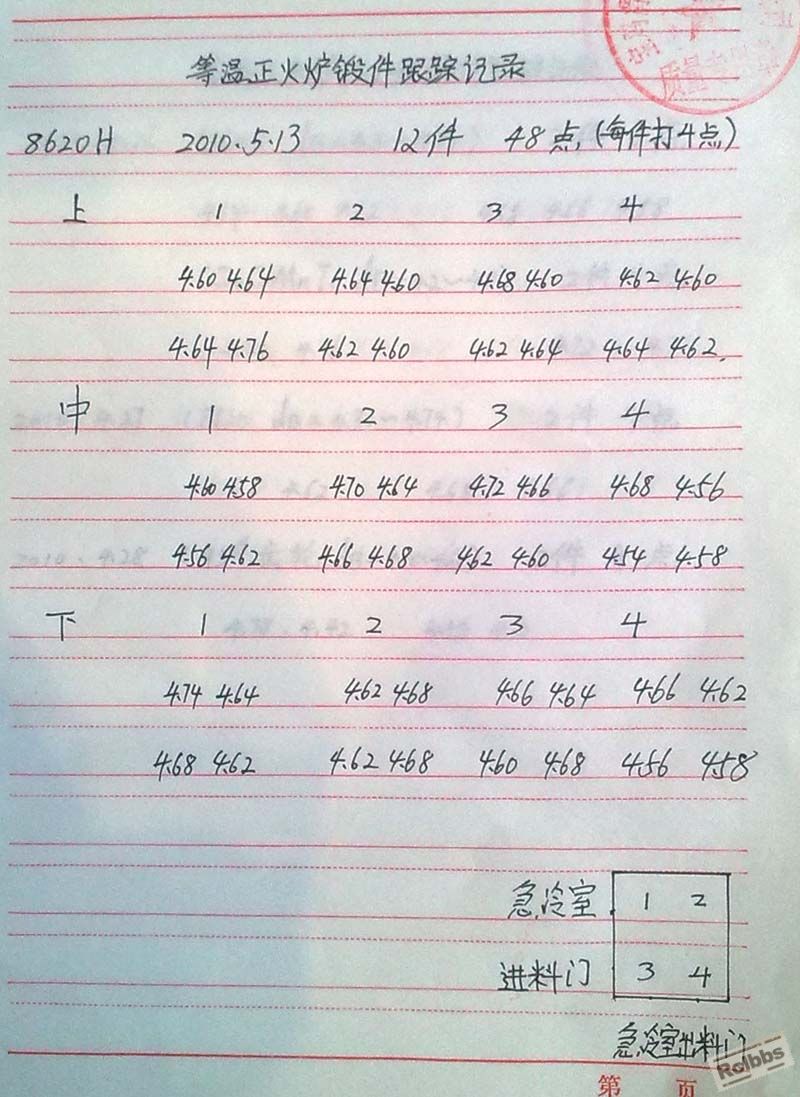 等温正火炉锻件跟踪记录
8620H 2010.5.13 12件 48点,(每件打4点)
上 1 2 3 4
4.60 4.64 4.64 4.60 4.68 4.60 4.62 4.60
4.64 4.76 4.62 4.60 4.62 4.64 4.64 4.62.
中 1 2 3 4
4.60 4.58 4.70 4.64 4.72 4.66 4.68 4.56
4.56 4.62 4.66 4.68 4.62 4.60 4.54 4.58
下 1 2 3 4
4.74 4.64 4.62 4.68 4.66 4.64 4.66 4.62
4.68 4.62 4.62 4.68 4.60 4.68 4.56 4.58
急冷室 1 2
进料门 3 4
急冷室出料门
第 页
Rclbbs
质量